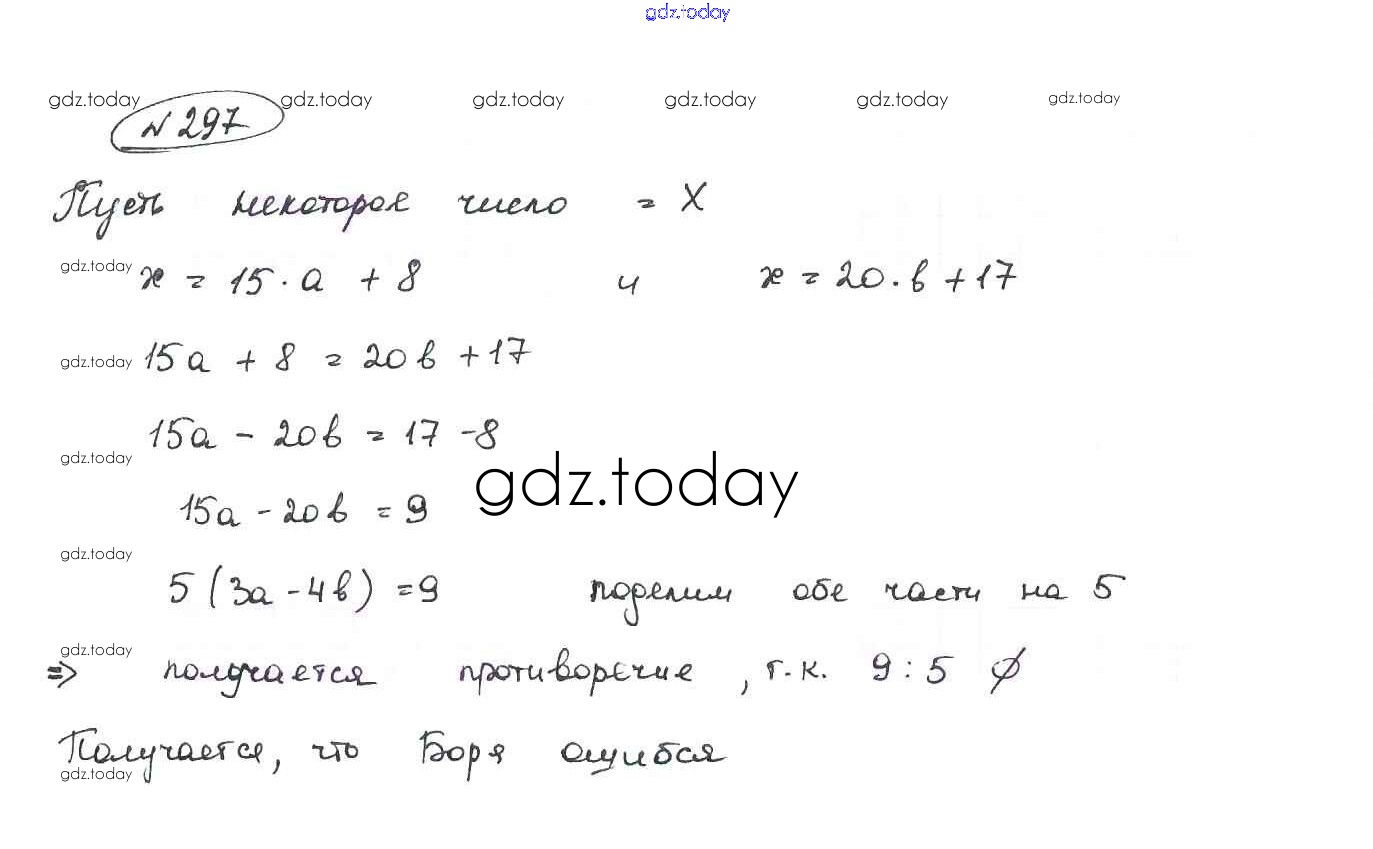 gdz.today
gdz.today gdz.today gdz.today gdz.today gdz.today gdz.today
№ 297
Пусть некоторое число = X
gdz.today x = 15 · a + 8 и x = 20 · b + 17
gdz.today 15a + 8 = 20b + 17
15a - 20b = 17 - 8
gdz.today
gdz.today
15a - 20b = 9
gdz.today
5 (3a - 4b) = 9 поделим обе части на 5
gdz.today
=> получается противоречие, т.к. 9 : 5 ∅
Получается, что Боря ошибся
gdz.today